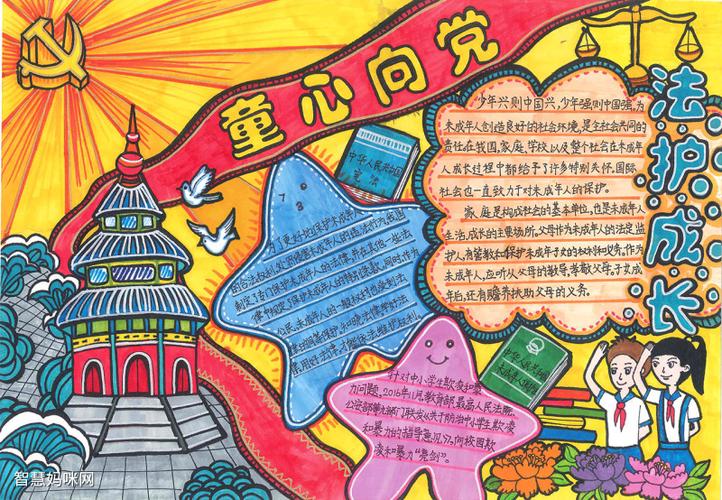 童心向党
法护成长
少年兴则中国兴，少年强则中国强。为
未成年人创造良好的社会环境，是全社会共同的
责任。在我国，家庭、学校以及整个社会在未成年
人成长过程中都给予了许多特别关怀。国际
社会也一直致力于对未成年人的保护。
家庭是构成社会的基本单位，也是未成年人
生活、成长的主要场所。父母作为未成年人的法定监
护人，有管教和保护未成年子女的权利和义务。作为
未成年人，应听从父母的教导，孝敬父母。子女成
年后，还有赡养扶助父母的义务。
中华人民共和国
宪法
为了更好地保护未成年
的合法权益，
制定了专门保护未成年人的法律，并在其他一些法
律中规定了保护未成年人的特别条款。同时，作为
公民，未成年人的一般权利也受到法
中华人民共和国
未成年人保护法
针对中小学生欺凌和暴
力问题，2016年11月，教育部、最高人民法院、
公安部等九部门联合发《关于防治中小学生欺凌
和暴力的指导意见》，向校园欺
凌和暴力“亮剑”。
智慧妈咪网